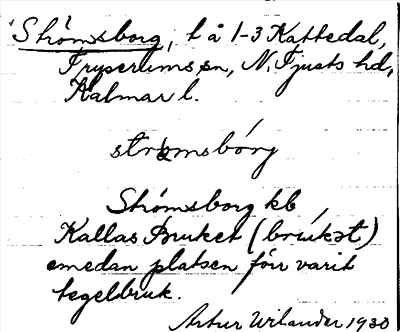 Strömsborg, l å 1-3 Kattedal,
Tryserums sn, N. Tjusts hd,
Kalmar l.
strömsbórg
Strömsborg kb
Kallas Bruket (brúkət)
emedan platsen förr varit
tegelbruk.
Artur Wilander 1930